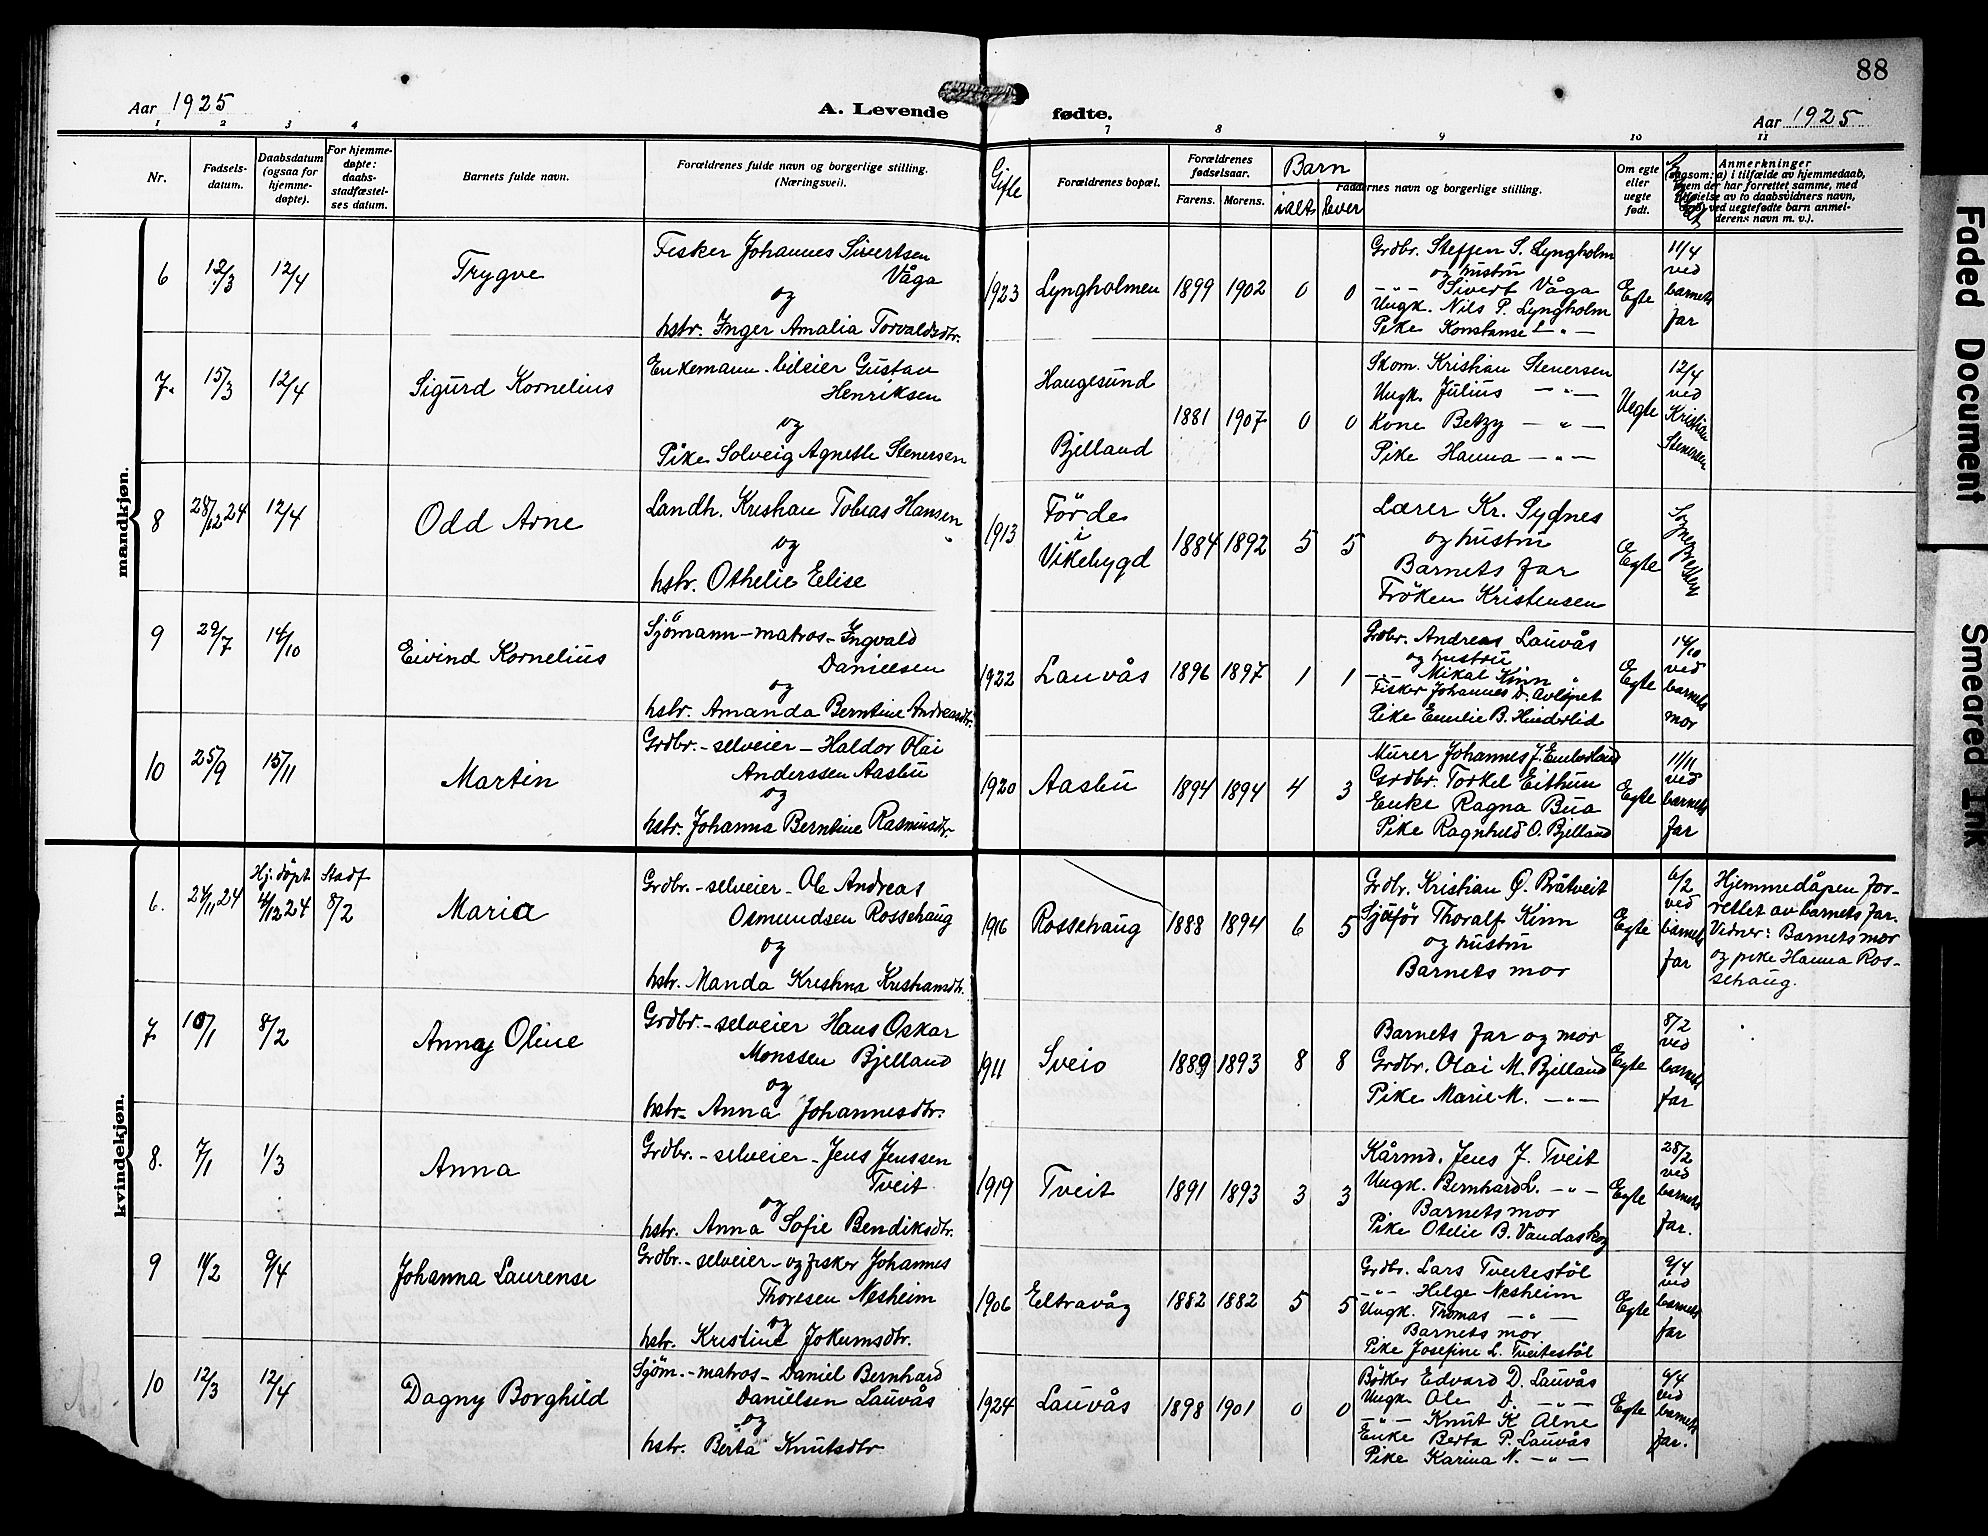 88
Aar 1925
A. Levende fødte.
Aar 1925
1 2 3 4 7 8 9 10 11
Nr.
Fødsels-
datum.
Daabsdatum
(ogsaa for
hjemme-
døpte).
For hjemme-
døpte:
daabs-
stadfæstel-
ses datum.
Barnets fulde navn.
Forældrenes fulde navn og borgerlige stilling.
(Næringsvei).
Gifte
Forældrenes bopæl.
Forældrenes
fødselsaar.
Farens. Morens.
Barn
ialt lever
Faddernes navn og borgerlige stilling.
Om egte
eller
uegte
født.
Anmerkninger
mandkjøn.
6 12/3 12/4
Trygve
Fisker Johannes Sivertsen
Våga
og
hstr. Inger Amalia Torvaldsdtr.
1923 Lyngholmen 1899 1902 0 0
Grdbr. Steffen S. Lyngholm
og hustru
-"- Sivert Våga
Ungk. Nils P. Lyngholm
Pike Konstanse -"-
Egte
11/4
ved
barnets
far
7. 15/3 12/4
Sigurd Kornelius
Enkemann bileier Gustav
Henriksen
og
Pike Solveig Agnette Stenersen
Haugesund
Bjelland
1881 1907 0 0
Skom. Kristian Stenersen
Ungk. Julius -"-
Kone Betzy -"-
Pike Hanna -"-
Uegte
12/4
ved
Kristian
Stenersen
8 28/12 24 12/4
Odd Arne
Landh. Kristian Tobias Hansen
og
hstr. Othelie Elise
1913 Förde
i
Vikebygd
1884 1892 5 5
Lærer Kr. Sydnes
og hustru
Barnets far
Fröken Kristensen
Egte
Sognepresten
9 29/7 14/10
Eivind Kornelius
Sjömann - matros - Ingvald
Danielsen
og
hstr. Amanda Berntine Andreasdtr.
1922 Lauvås 1896 1897 1 1
Grdbr. Andreas Lauvås
og hustru
-"- Mikal Kinn
Fisker Johannes D. Avlöpet
Pike Emilie B.
Egte
14/10
ved
barnets
mor
10 25/9 15/11
Martin
Grdbr. - selveier - Haldor Olai
Anderssen Aasbu
og
hstr. Johanna Berntine Rasmusdtr.
1920 Aasbu 1894 1894 4 3
Murer Johannes J.
Grdbr. Torkel Eithun
Enke Ragna Bua
Pike Ragnhild O. Bjelland
Egte
11/11
ved
barnets
far
kvindekjøn.
6. 24/11 24
Hj. döpt
4/12 24
Stadf
8/2
Maria
Grdbr. - selveier - Ole Andreas
Osmundsen Rossehaug
og
hstr. Manda Kristina Kristiansdtr.
1916 Rossehaug 1888 1894 6 5
Grdbr. Kristian Ö. Bråtveit
Sjåför Thoralf Kinn
og hustru
Barnets mor
Egte
6/2
ved
barnets
far
Hjemmedåpen for-
rettet av barnets far.
Vidner: Barnets mor
og pike Hanna Ros-
sehaug.
7 10/1 8/2
Anna Oline
Grdbr. - selveier Hans Oskar
Monssen Bjelland
og
hstr. Anna Johannesdtr.
1911 Sveio 1889 1893 8 8
Barnets far og mor
Grdbr. Olai M. Bjelland
Pike Marie M. -"-
Egte
8/2
ved
barnets
far
8. 7/1 1/3
Anna
Grdbr. - selveier - Jens Jenssen
Tveit
og
hstr. Anna Sofie Bendiksdtr.
1919 Tveit 1891 1893 3 3
Kårmd. Jens J. Tveit
Ungk. Bernhard L. -"-
Barnets mor
Pike Otelie B. Vandaskog
Egte
28/2
ved
barnets
far.
9 11/2 9/4
Johanna Laurense
Grdbr. - selveier - og fisker Johannes
Thoresen Nesheim
og
hstr. Kristine Jokumsdtr.
1906 Eltravåg 1882 1882 5 5
Grdbr. Lars Tveitestöl
-"- Helge Nesheim
Ungk. Thomas -"-
Barnets mor
Pike Josefine L. Tveitestöl
Egte
9/4
ved
barnets
far
10 12/3 12/4
Dagny Borghild
Sjöm. - matros - Daniel Bernhard
Danielsen Lauvås
og
hstr. Berta Knutsdtr
1924 Lauvås 1898 1901 0 0
Bödker Edvard D. Lauvås
Ungk. Ole D. -"-
-"- Knut K Alne
Enke Berta P. Lauvås
Pike Karina N. -"-
Egte
9/4
ved
barnets
far.
Faded Document
Smeared Ink